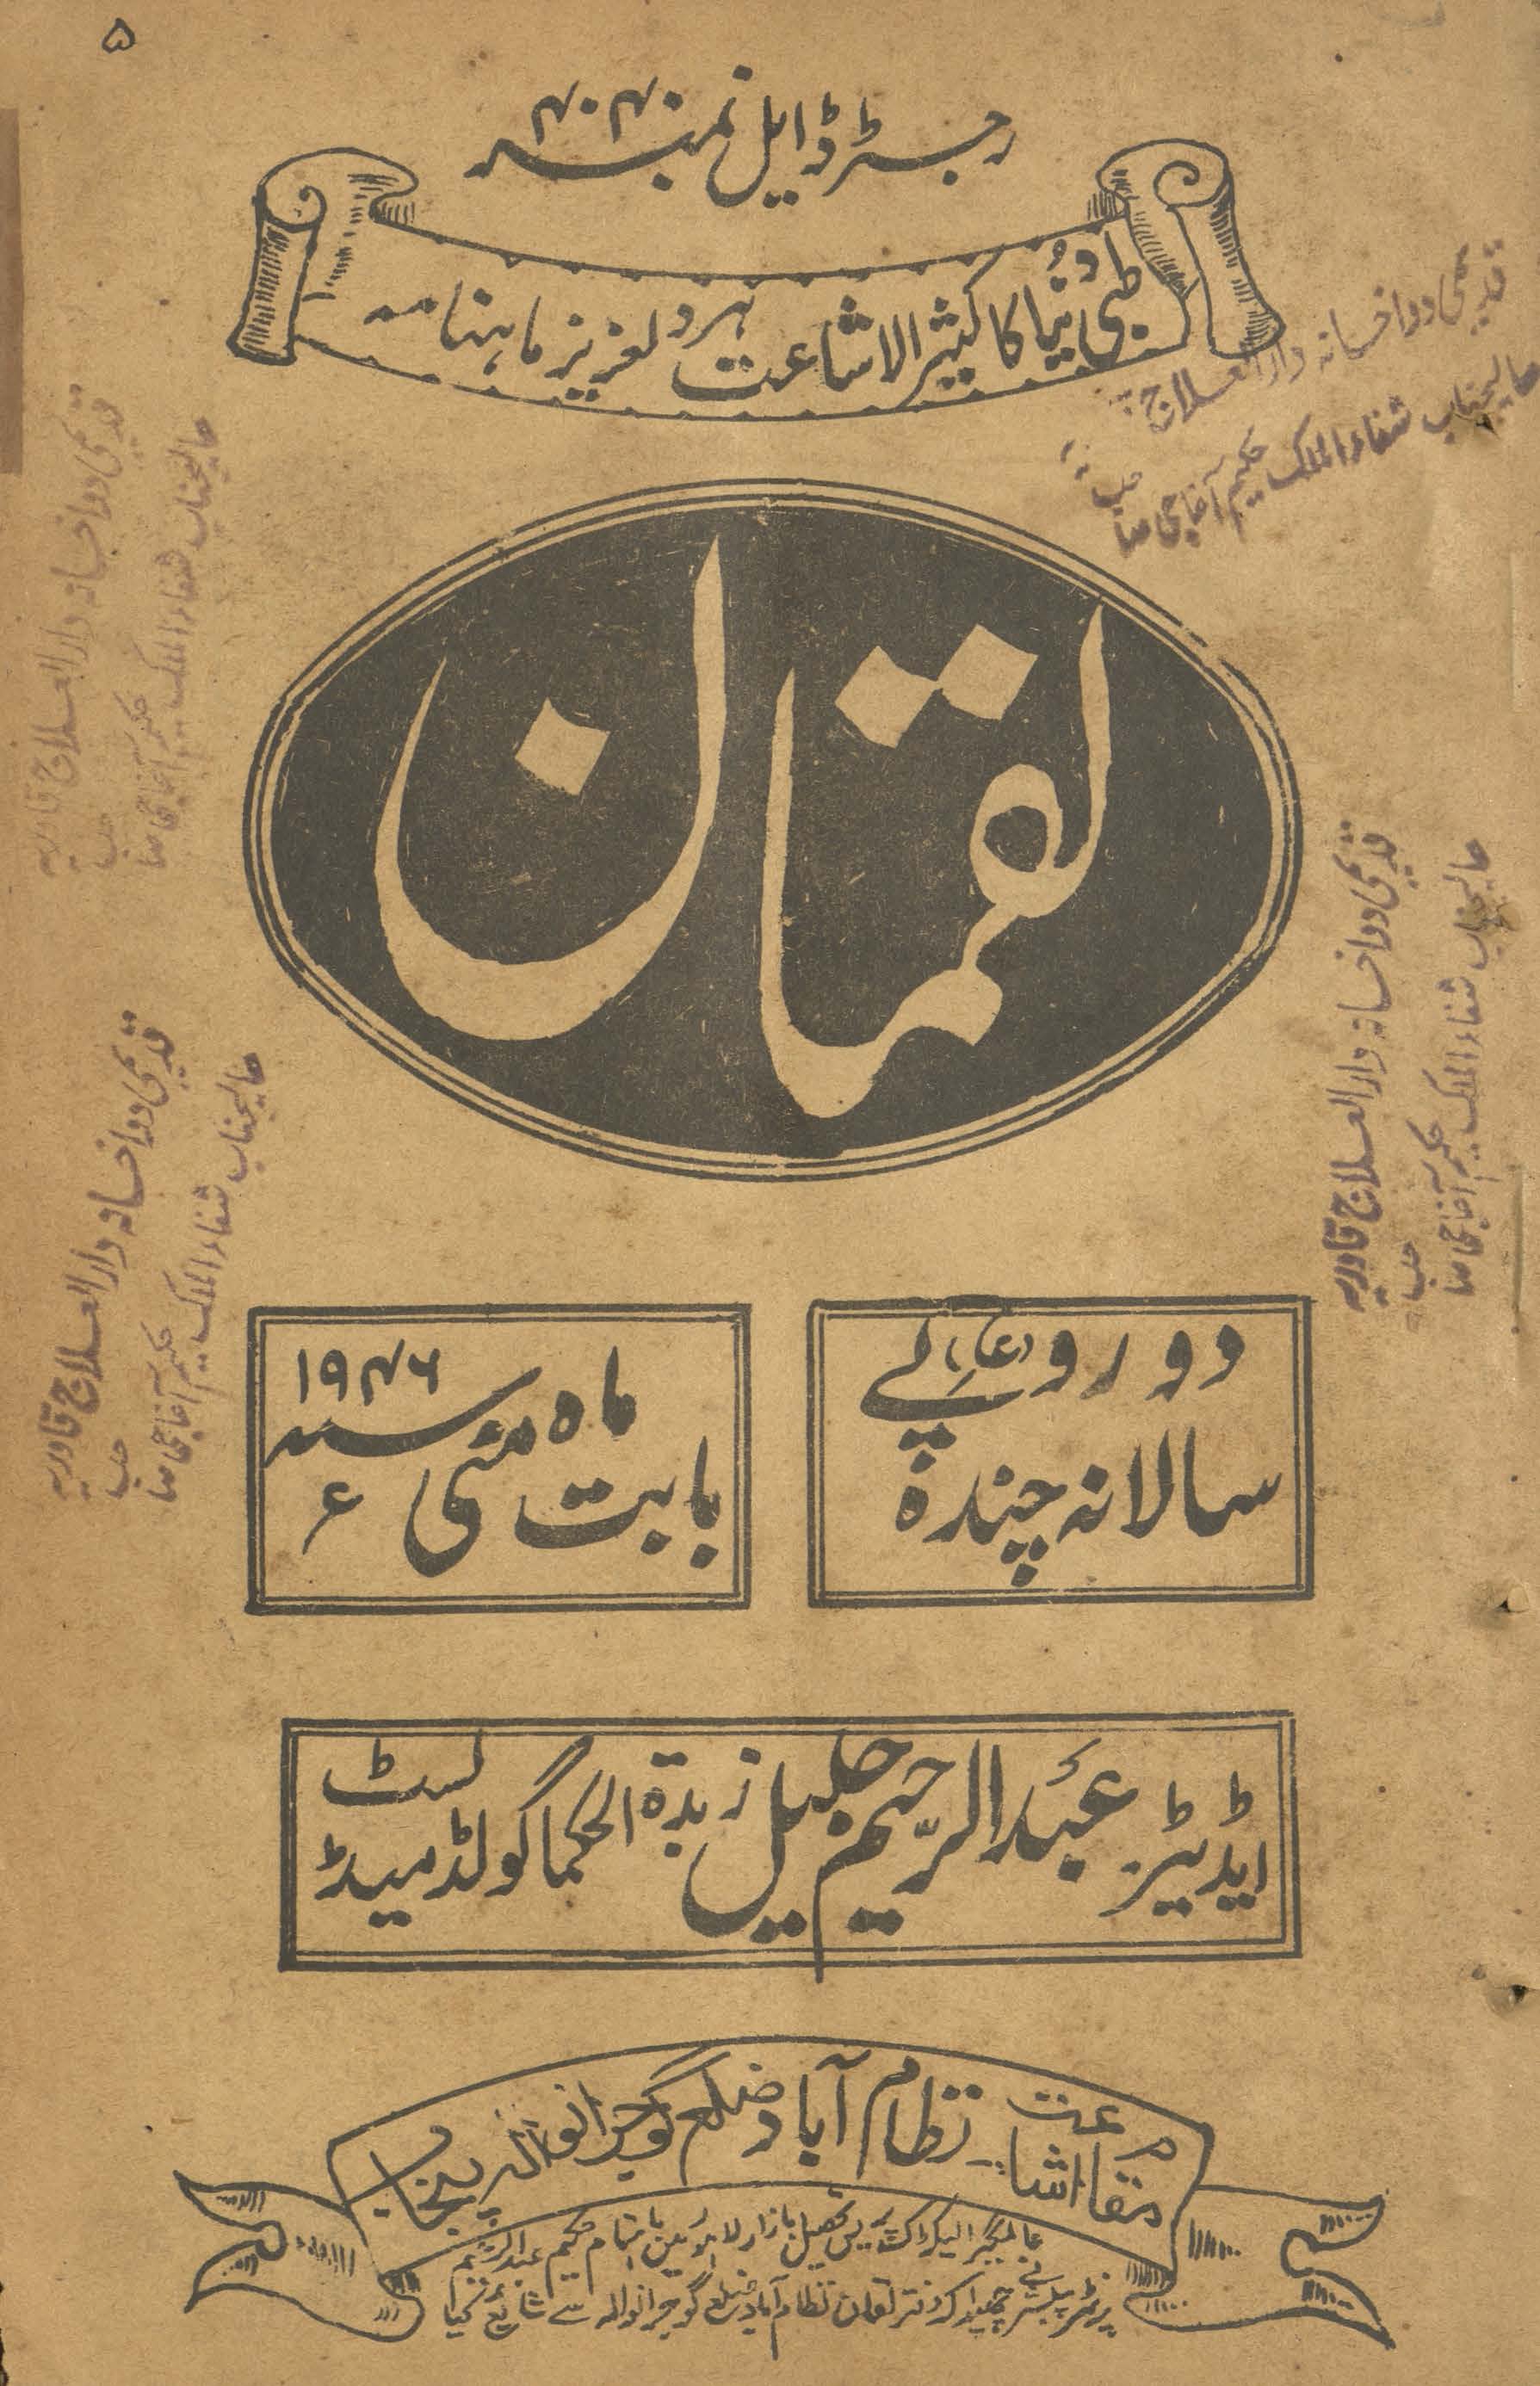 ۵
رجسٹرڈ ایل نمبر ۴۰۴۰
طبی دُنیا کا کثیر الاشاعت ہر دلعزیز ماہنامہ
لقمان
دو روپے (عہ)
سالانہ چندہ
بابت ماہ مئی سنہ ۱۹۴۶ء
ایڈیٹر۔ عبدالرّحیم جلیل زبدۃ الحکما گولڈ میڈلسٹ
مقام اشاعت نظام آباد ضلع گوجرانوالہ پنجاب
عالمگیر الیکٹرک پریس کھیل بازار لاہور میں باہتمام حکیم عبدالرحیم
پرنٹر پبلشر نے چھپوا کر دفتر لقمان نظام آباد ضلع گوجرانوالہ سے شائع کیا
قدیمی دواخانہ دار العلاج
عالیجناب شفاء الملک حکیم آغا جی صاحب
قدیمی دواخانہ دار العلاج قادریہ
عالیجناب شفاء الملک حکیم آغا جی صاحب
قدیمی دواخانہ دار العلاج قادریہ
عالیجناب شفاء الملک حکیم آغا جی صاحب
قدیمی دواخانہ دار العلاج قادریہ
عالیجناب شفاء الملک حکیم آغا جی صاحب